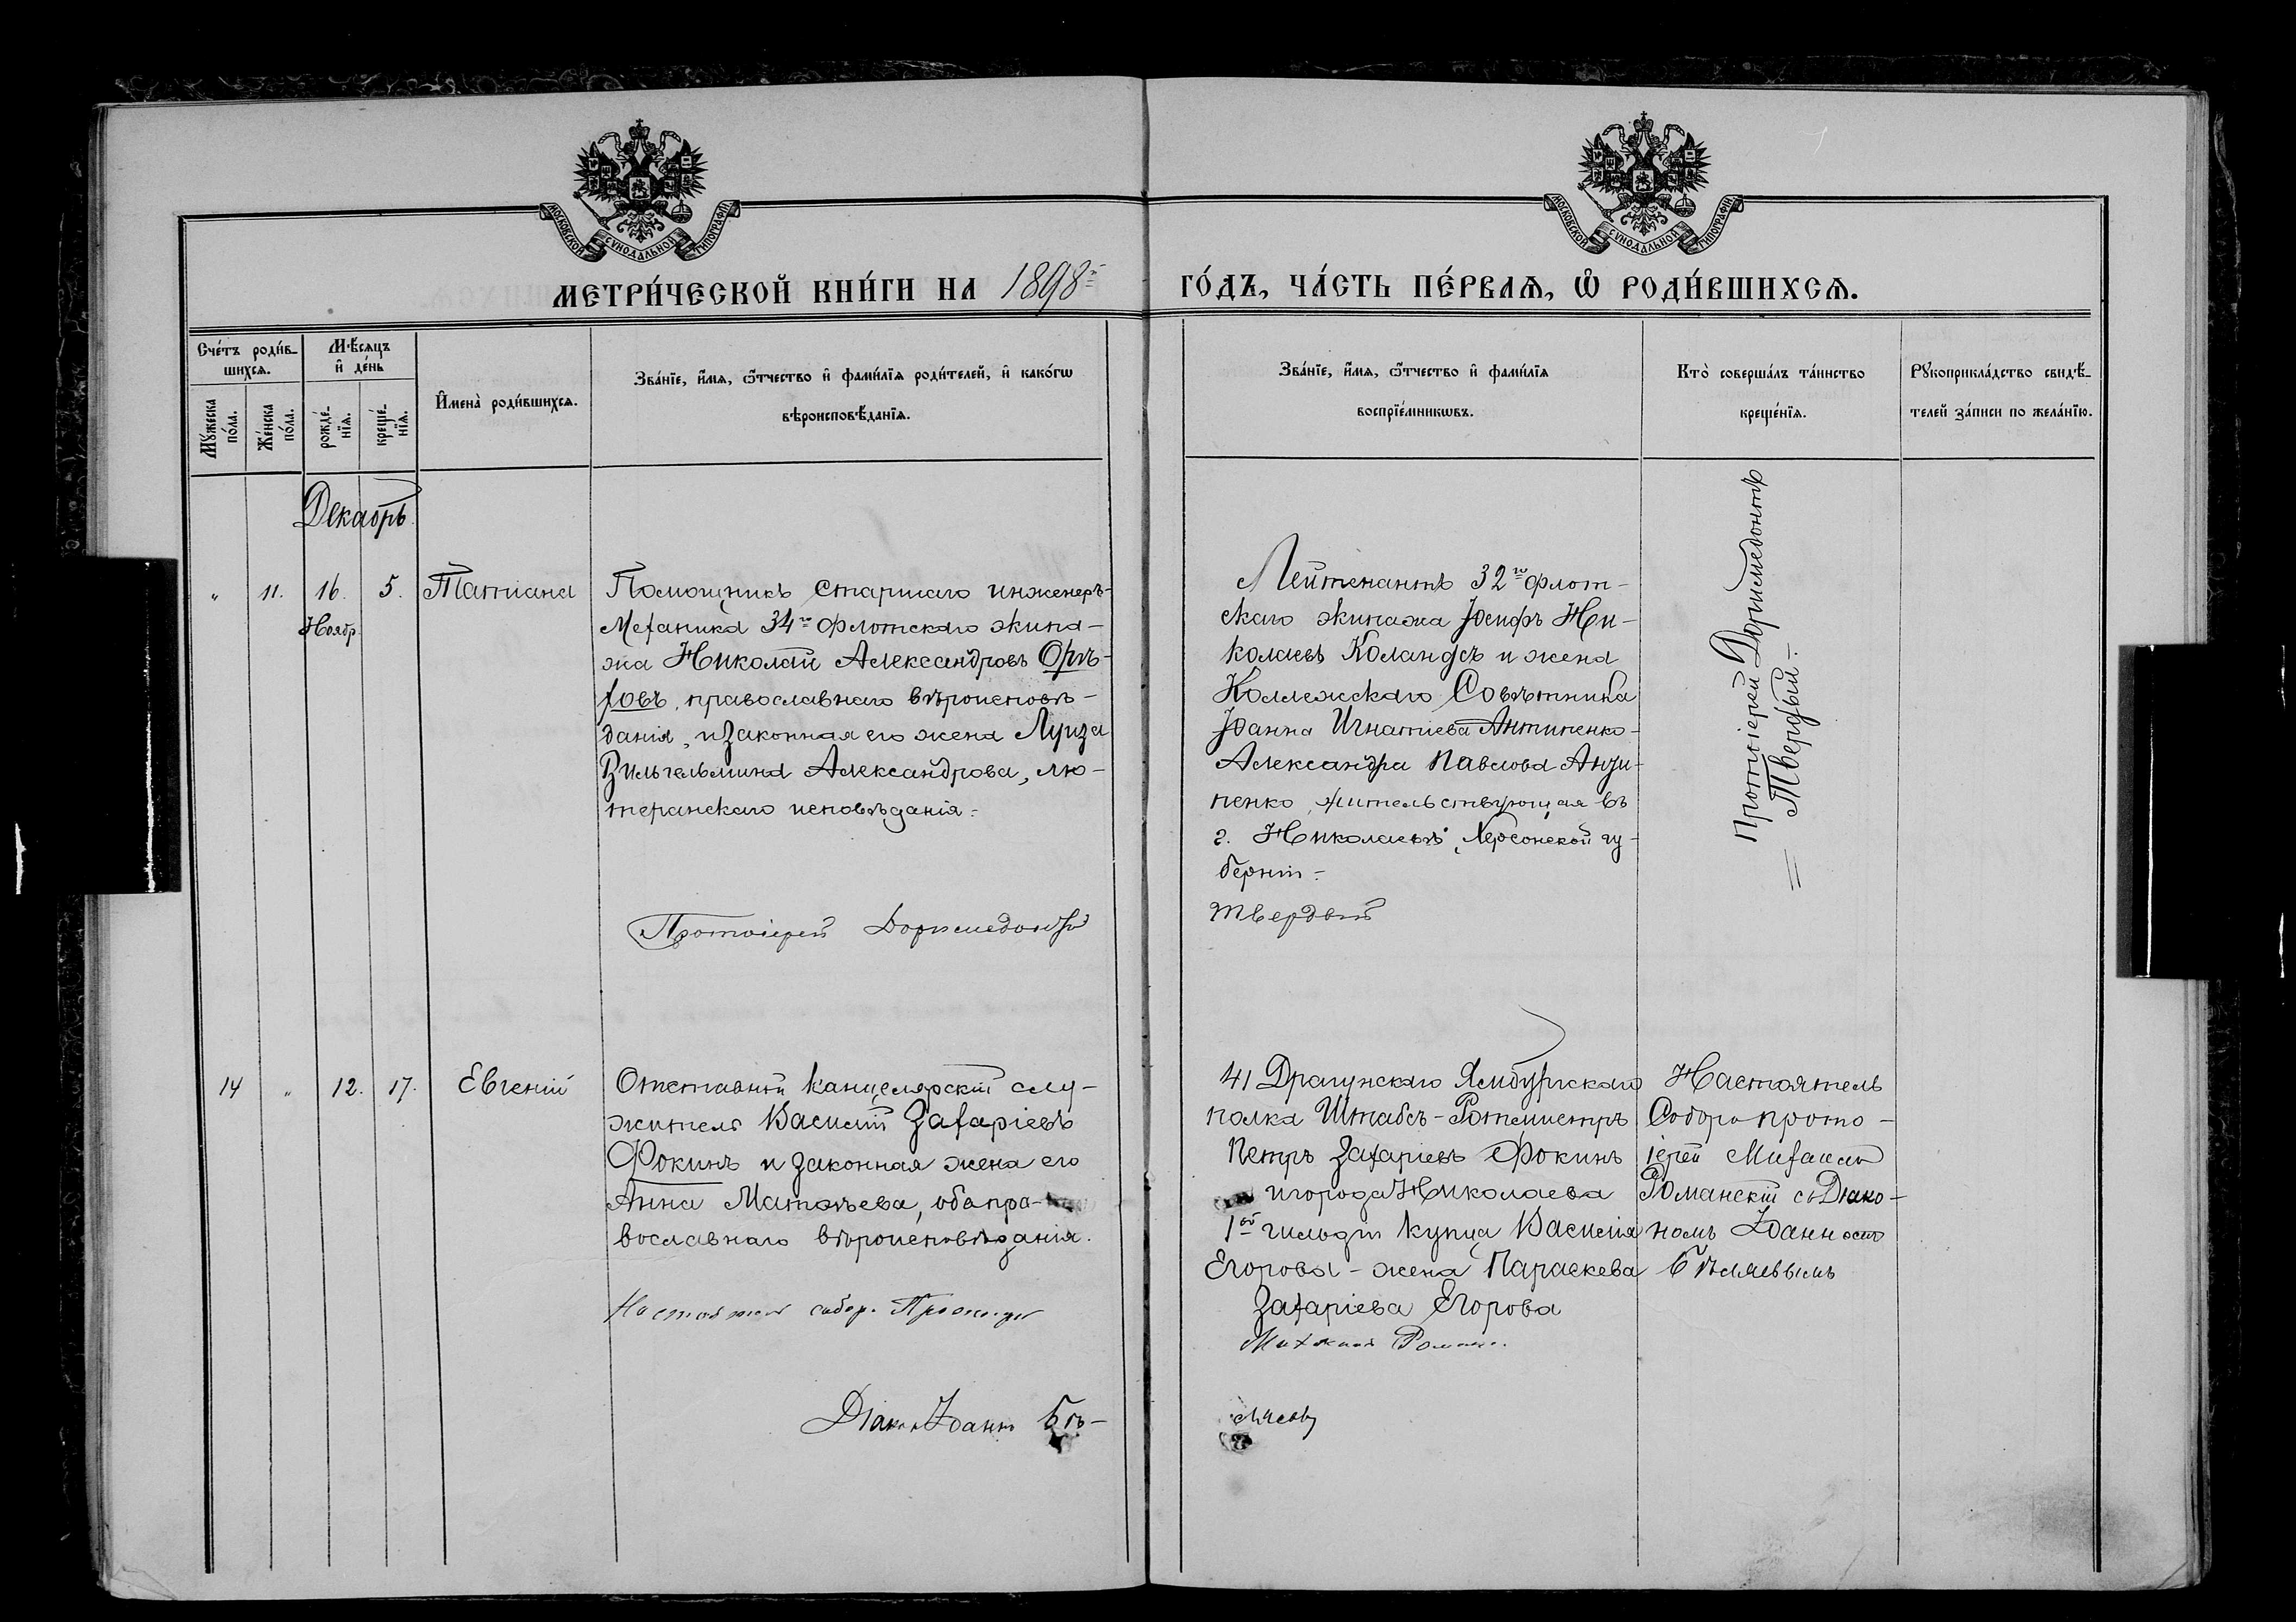 МОСКОВСКОЙ СѴНОДАЛЬНОЙ ТИПОГРАФІИ
МОСКОВСКОЙ СѴНОДАЛЬНОЙ ТИПОГРАФІИ
МЕТРИ́ЧЕСКОЙ КНИ́ГИ НА 1898й ГО́ДЪ, ЧА́СТЬ ПЕ́РВАѦ, Ѡ҆ РОДИ́ВШИХСѦ.
Сче́тъ роди́в-
шихсѧ.
Мꙋ́жеска
по́ла.
Же́нска
по́ла.
Мѣ́сѧцъ
и҆ де́нь
рожде́-
нїѧ.
креще́-
нїѧ.
И҆мена̀ роди́вшихсѧ.
Зва́нїе, и҆́мѧ, ѻ҆́тчество и҆ фами́лїѧ роди́телей, и҆ како́гѡ
вѣроисповѣ́данїѧ.
Зва́нїе, и҆́мѧ, ѻ҆́тчество и҆ фами́лїѧ
воспрїе́мникѡвъ.
Кто̀ соверша́лъ та́инство
креще́нїѧ.
Рꙋкоприкла́дство свидѣ́-
телей за́писи по жела́нїю.
Декабрь.
„ 11. 16. 5. Татiана
Ноябр.
Помощникъ старшаго инженеръ-
Механика 34го флотскаго экипа-
жа Николай Александровъ Орѣ-
ховъ, православнаго вѣроисповѣ-
данія, и законная его жена Луиза
Вильгельмина Александрова, лю-
теранскаго исповѣданія.
Лейтенантъ 32го флот-
скаго экипажа Іосифъ Ни-
колаевъ Коландсъ и жена
Коллежскаго Совѣтника
Іоанна Игнатiева Антипенко-
Александра Павлова Анти-
пенко, жительствующая въ
г. Николаевѣ, Херсонской гу-
берніи.
Протоіерей Доримедонтъ
Твердый.
Протоіерей Доримедонтъ
Твердый
14 „ 12. 17. Евгеній
Отставный канцелярскій слу-
житель Василій Захаріевъ
Фокинъ и законная жена его
Анна Матвѣева, оба пра-
вославнаго вѣроисповѣданія.
41 Драгунскаго Ямбургскаго
полка Штабсъ-Ротмистръ
Петръ Захаріевъ Фокинъ
и города Николаева
1ой гильдіи купца Василія
Егорова - жена Параскева
Захаріева Егорова
Настоятель
Собора прото-
іерей Михаилъ
Романскій съ Діако-
номъ Іоанномъ
Бѣляевымъ
Настоятель собор. Протоіерей
Михаилъ Роман.
Діаконъ Іоаннъ Бѣ-
ляевъ